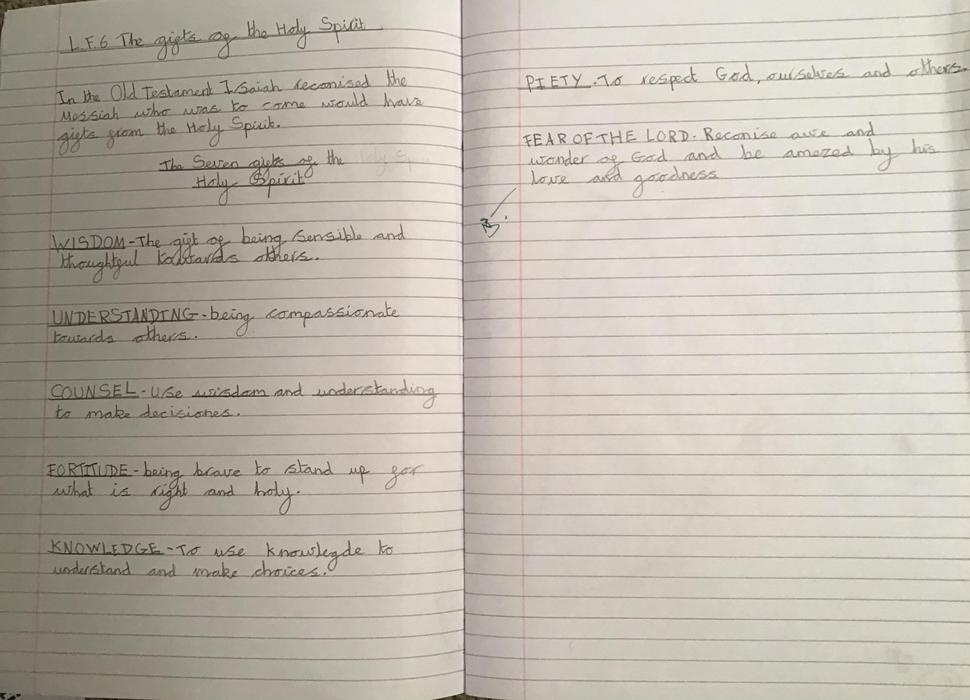 L.F.6 The gifts of the Holy Spirit
In the Old Testament Isaiah reconised the
Messiah who was to come would have
gifts from the Holy Spirit.
The Seven gifts of the
Holy Spirit
WISDOM - The gift of being sensible and
thoughtful towards others.
UNDERSTANDING - being compassionate
towards others.
COUNSEL - Use wisdom and understanding
to make decisiones.
FORTITUDE - being brave to stand up for
what is right and holy.
KNOWLEDGE - To use knowlegde to
understand and make choices.
PIETY - To respect God, ourselves and others.
FEAR OF THE LORD - Reconise awe and
wonder of God and be amazed by his
love and goodness